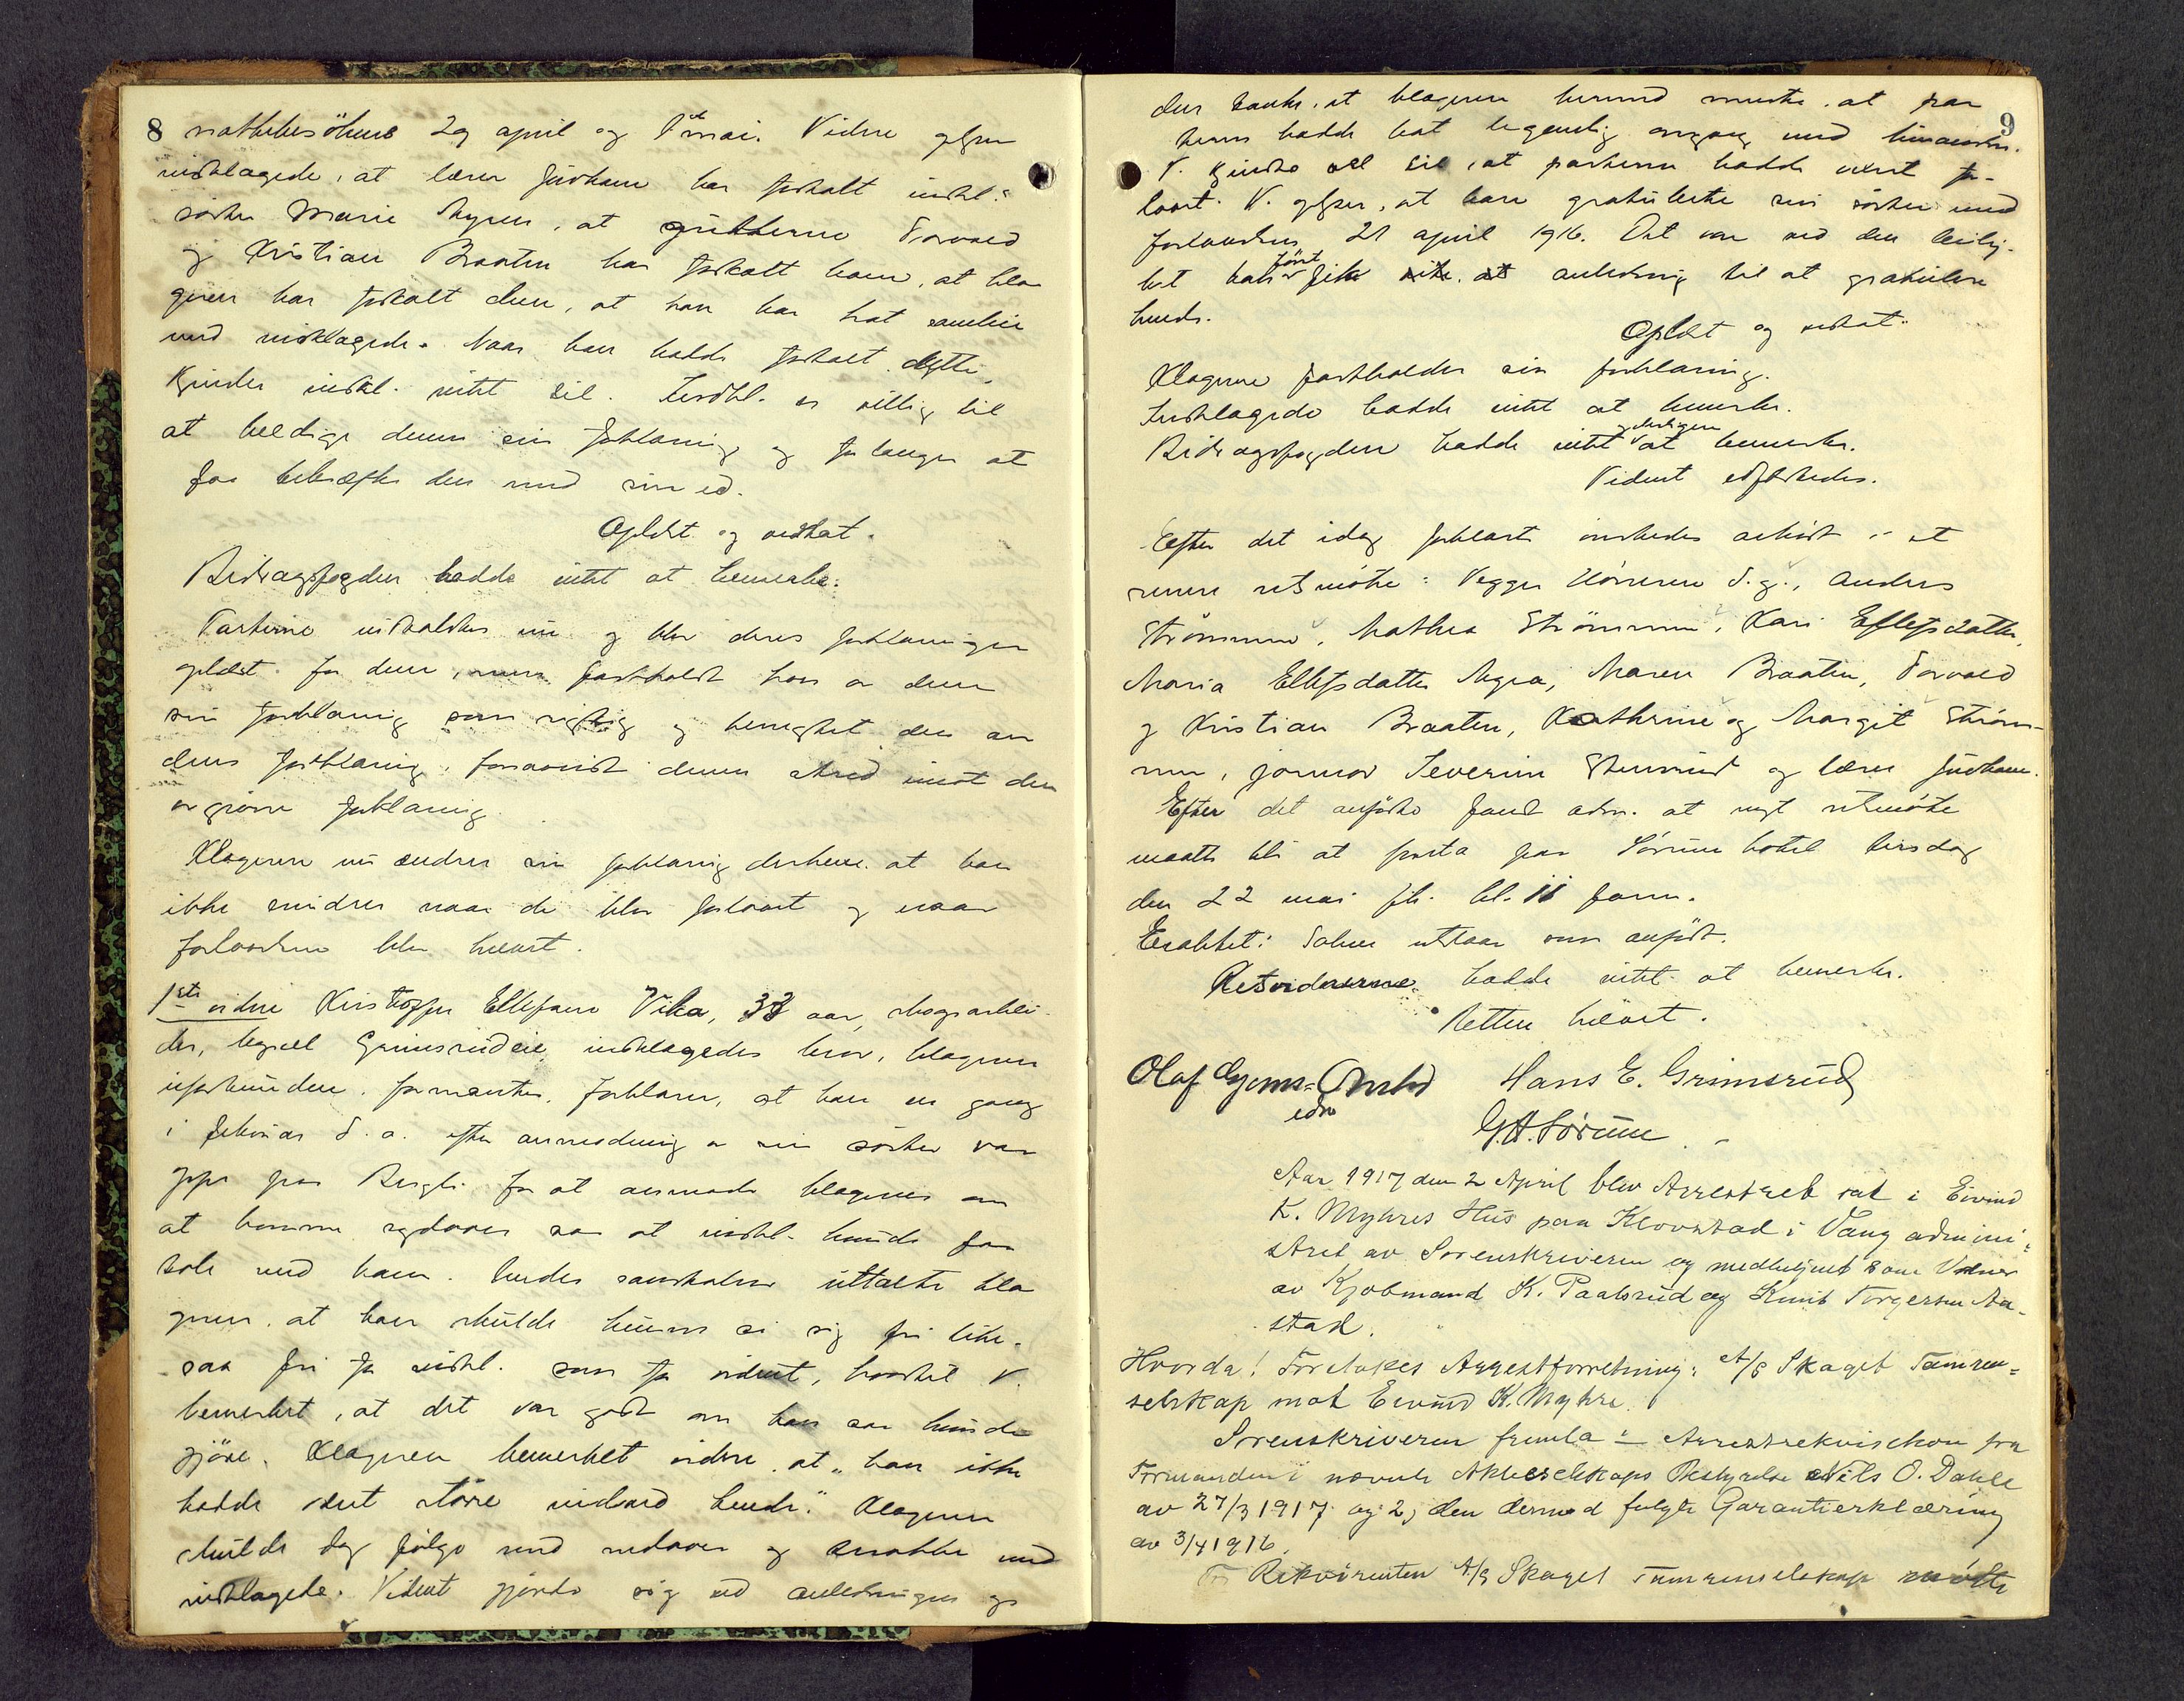 8
natklubsökere 29 april og 1 mai. Videre oplyser
indklagede, at lærer Juvkam har fortalt indkl.s
søster Marie Myren, at gutterne Torvald
og Kristian Braaten har fortalt ham, at kla
geren har fortalt dem, at han har hat samleie
med indklagede. Naar han hadde fortalt dette,
kjender indkl. intet til. Indkl. er villig til
at beedige denne sin forklaring og forlanger at
faa bekræfte den med sin ed.
Oplæst og vedtat.
Bidragsfogden hadde intet at bemerke.
Parterne indkaldtes nu og blev deres forklaringer
oplæst for dem, men fastholdt hver av dem
sin forklaring som rigtig og benegtet den an
dens forklaring, forsaavidt denne stred imot den
avgivne forklaring.
Klageren nu ændrer sin forklaring derhen at han
ikke mindes naar de blev forlovet og naar
forlovelsen blev hævet.
1ste vidne Kristoffer Ellefsen Vika, 33 aar, skogsarbei
der, bopæl Grimsrudeie indklagedes bror, klageren
uforbunden. Formanet. Forklarer, at han en gang
i februar d. a. efter anmodning av sin søster var
oppe paa Bergli for at anmode klageren om
at komme nedover saa at indkl. kunde faa
tale med ham. Under samtalen uttalte kla
geren at han skulde kunne si sig fri like-
saa fri for indkl. som for vidnet, hvortil V.
bemerket, at det var godt om han saa kunde
gjöre. Klageren bemerket videre at "han ikke
hadde været större indved hende." Klageren
skulde dog følge med nedover og snakke med
indklagede. Vidnet gjorde sig ved anledningen op
9
den tanke, at klageren hermed mente at par
terne hadde hat legemlig omgang med hinanden.
V. kjendte vel til, at parterne hadde været for-
lovet. V. oplyser, at han gratulerte sin søster med
forlovelsen 21 april 1916. Det var ved den leilig-
het han först fik anledning til at gratulere
hende.
Oplæst og vedtat.
Klageren fastholder sin forklaring.
Indklagede hadde intet at bemerke.
Bidragsfogden hadde intet yderligere at bemerke.
Vidnet edfæstedes.
Efter det idag forklarte ønskedes avhørt i et
senere retsmöte: Vegger Hörreren d.y., Anders
Strömmen, Mathea Strömmen, Kari Ellefsdatter,
Maria Ellefsdatter Myra, Maren Braaten, Torvald
og Kristian Braaten, Kathrine og Margit Ström-
men, jormor Severine Stensrud og lærer Juvkam.
Efter det anførte fandt adm. at nyt retsmöte
maatte bli at holde paa Sørum hotel tirsdag
den 22 mai fk. kl. 11 form.
Eragtet: Saken utstaar som anført.
Retsvidnerne hadde intet at bemerke.
Retten hævet.
Olaf Gjems-Onstad Hans E. Grimsrud
edv G. H. Sørum
Aar 1917 den 2 April blev Arrestret sat i Eivind
K. Myhres Hus paa Klovstad i Vang admini-
stret av Sorenskriveren og medbetjent som Vidner
av Kjøbmand K. Paalsrud og Knut Torgersen Aa-
stad.
Hvorda! Foretokes Arrestforretning: A/S Skaget Tamren-
selskap mot Eivind K. Myhre.
Sorenskriveren fremla 1 Arrestrekvisition fra
Formanden i nævnte Aktieselskaps Bestyrelse Nils O. Dahle
av 27/3 1917 og 2, den dermed fulgte Garantierklæring
av 3/4 1916.
For Rekvirenten A/S Skaget Tamrenselskap mødte